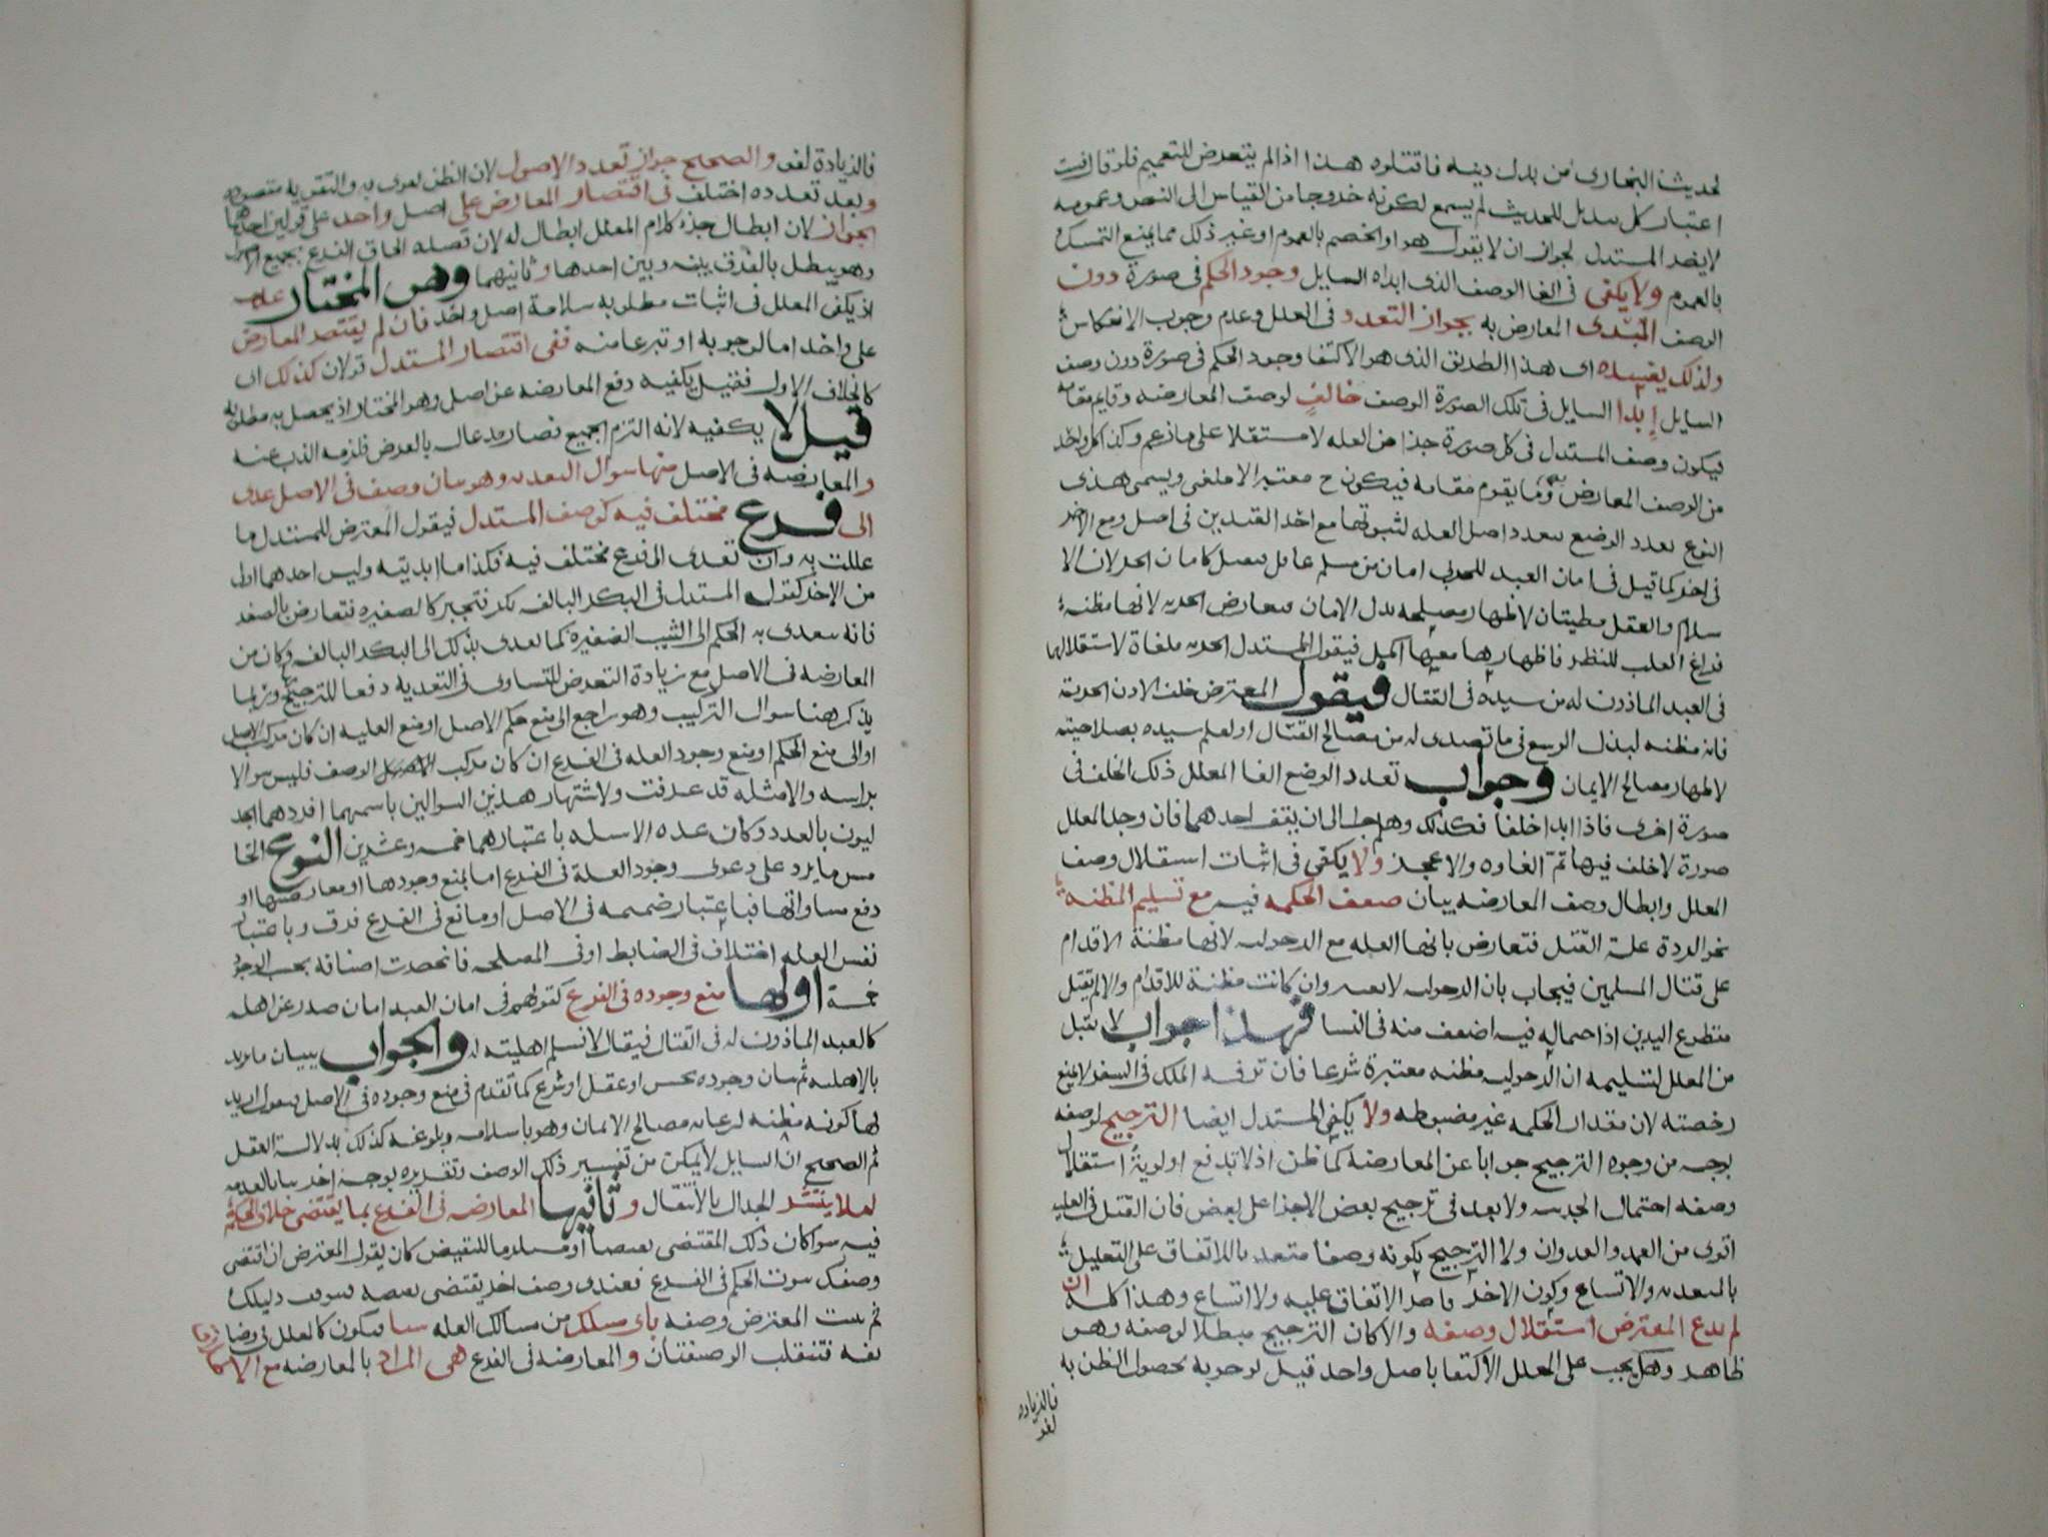 لحديث البخارى من بدل دينه فاقتلوه هذا اذا لم يتعرض للتعميم فلو قال فثبت
اعتبار كل تبديل للحديث لم يسمع لكونه خروجا من القياس الى النص وعمومه
لا يضر المستدل لجواز ان لا يقول هو او الخصم بالعموم او غير ذلك مما يمنع التمسك
بالعموم ولا يكفى فى الغا الوصف الذى ابداه السايل وجود الحكم فى صورة دون
الوصف المبدى المعارض به بجواز التعدد فى العلل وعدم وجوب الانعكاس
ولذلك يفسده اى هذا الطريق الذى هو الاكتفا وجود الحكم فى صورة دون وصف
السايل إبدا السايل فى تلك الصورة الوصف خالفٍ لوصف المعارضه وقايم مقامه
فيكون وصف المستدل فى كل صورة جزا من العله لا مستقلا على ما زعم وكذا كل واحد
من الوصف المعارض به وما يقوم مقامه فيكون ح معتبرا لا ملغى ويسمى هذى
النوع تعدد الوضع لتعدد اصل العله لثبوتها مع احد القيدين فى اصل ومع الاخر
فى اخر كما قيل فى امان العبد للحربى امان من مسلم عاقل فيصل كامان الحر لان الا
سلام والعقل مظنتان لاظهار مصلحه بذل الامان فيعارض الحريه لانها مظنه
فراغ القلب للنظر فاظهارها معها اكمل فيقول المستدل الحريه ملغاة لاستقلالها
فى العبد الماذون له من سيده فى القتال فيقول المعترض خلف الاذن الحرية
فانه مظنه لبذل الوسع فى ما تصدى له من مصالح القتال او لعلم سيده بصلاحيته
لاظهار مصالح الايمان وجواب تعدد الوضع الغا المعلل ذلك الخلف فى
صورة اخرى فاذا ابدا خلفا فكذلك وهلم جرا الى ان يقف احدهما فان وجد المعلل
صورة لا خلف فيها تمّ الغاوه والا عجز ولا يكفى فى اثبات استقلال وصف
المعلل وابطال وصف المعارضه ببيان ضعف الحكمه فيه مع تسليم المظنة
نحو الردة علة القتل فتعارض بانها العله مع الرجوليه لانها مظنة الاقدام
على قتال المسلمين فيجاب بان الرجوليه لا تعتبر وان كانت مظنة للاقدام والا لم يقتل
مقطوع اليدين اذ احتماله فيه اضعف منه فى النسا فهذا جواب لا يقبل
من المعلل لتسليمه ان الرجوليه مظنه معتبرة شرعا فان ترفه الملك فى السفر لا يمنع
رخصته لان مقدار الحكمه غير مضبوطه ولا يكفى المستدل ايضا الترجيح لوصفه
بوجه من وجوه الترجيح جوابا عن المعارضه كما ظن اذ لا تدفع اولوية استقلال
وصفه احتمال الجزييه ولا بعد فى ترجيح بعض الاجزا على بعض فان القتل فى العليه
اقوى من العمد والعدوان ولا الترجيح بكونه وصفا متعد بالاتفاق على التعليل
بالتعديه والاتساع وكون الاخر قاصر الاتفاق عليه ولا اتساع وهذا كله ان
لم يدع المعترض استقلال وصفه والا كان الترجيح مبطلا لوصفه وهو
ظاهر وهل يجب على المعلل الاكتفا باصل واحد قيل لوجوبه لحصول الظن به
فالزياده
لغو
فالزيادة لغو والصحيح جواز تعدد الاصول لان الظن يقوى به والتقويه مقصوده
وبعد تعدده اختلف فى اقتصار المعارض على اصل واحد على قولين احدهما
الجواز لان ابطال جزء كلام المعلل ابطال له لان قصده الحاق الفرع بجميع الاصول
وهو يبطل بالفرق بينه وبين احدها وثانيهما وهو المختار
اذ يكفى المعلل فى اثبات مطلوبه سلامة اصل واحد فان لم يقتصر المعارض
على واحد اما لوجوبه او تبرعا منه ففى اقتصار المستدل قولان كذلك اى
كالخلاف الاول فقيل يكفيه دفع المعارضه عن اصل وهو المختار اذ يحصل به مطلوبه
قيل لا يكفيه لانه التزم الجميع فصار مدعاه بالعرض فلزمه الذب عنه
والمعارضه فى الاصل منها سوال التعديه وهو بيان وصف فى الاصل عدى
الى فرع مختلف فيه كوصف المستدل فيقول المعترض للمستدل ما
عللت به وان تعدى الى فرع مختلف فيه فكذا ما ابديته وليس احدهما اولى
من الاخر كقول المستدل فى البكر البالغه بكر فتجبر كالصغيره فتعارض بالصغر
فانه تتعدى به الحكم الى الثيب الصغيرة كما تعدى بذلك الى البكر البالغه وكان من
المعارضه فى الاصل مع زيادة التعرض للتساوى فى التعديه دفعا للترجيح وربما
يذكر هنا سوال التركيب وهو راجع الى منع حكم الاصل او منع العليه ان كان مركب الاصل
او الى منع الحكم او منع وجود العله فى الفرع ان كان مركب الوصف فليس سوالا
براسه والامثله قد عرفت ولاشتهار هذين السوالين باسمهما افردهما الجد
ليون بالعدد وكان عده الاسله باعتبارهما خمسه وعشرين النوع الخا
مس ما يرد على دعوى وجود العلة فى الفرع اما بمنع وجودها او معارضتها او
دفع مساواتها فباعتبار ضميمه فى الاصل او مانع فى الفرع فرق وباعتبار
نفس العله اختلاف فى الضابط او فى المصلحه فانحصرت اصنافه بحسب الوجود
خمسة اولها منع وجوده فى الفرع كقولهم فى امان العبد امان صدر عن اهله
كالعبد الماذون له فى القتال فيقال لا نسلم اهليته له والجواب ببيان ما يريد
بالاهليه ثم بيان وجوده بحس او عقل او شرع كما تقدم فى منع وجوده فى الاصل فيقول اريد
بها كونه مظنه لرعايه مصالح الايمان وهو باسلامه وبلوغه كذلك بدلالة العقل
ثم الصحيح ان السايل لا يمكن من تفسير ذلك الوصف وتقريره بوجه اخر
لئلا ينتشر الجدال بالانتقال وثانيها المعارضه فى الفرع بما يقتضى خلاف الحكم
فيه سوا كان ذلك المقتضى نقيضا او مستلزما للنقيض كان يقول المعترض ان اقتضى
وصفك ثبوت الحكم فى الفرع فعندى وصف اخر يقتضى نقيضه دليلك
ثم يثبت المعترض وصفه باى مسلك من مسالك العله شا فيكون كالمعلل فى
نفه فتنقلب الوصفتان والمعارضه فى الفرع هى المراد بالمعارضه مع الاطلاق